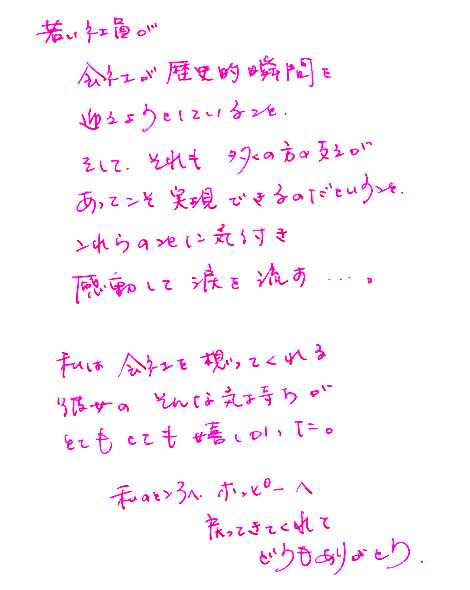 若い社員が
会社が歴史的瞬間を
迎えようとしていること、
そして、それも多くの方の支えが
あってこそ実現できるのだということ、
これらのことに気付き
感動して涙を流す…。
私は会社を想ってくれる
彼女のそんな気持ちが
とてもとても嬉しかった。
私のところへ、ホッピーへ
戻ってきてくれて
どうもありがとう.